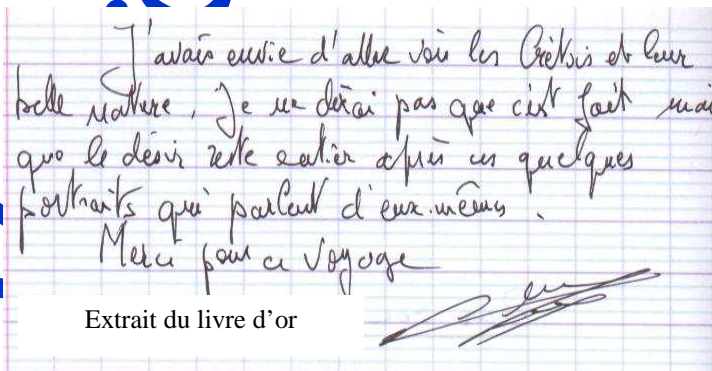 J'avais envie d'aller voir les Crétois et leur
belle nature, Je ne dirai pas que c'est fait mais
que le désir reste entier après ces quelques
portraits qui parlent d'eux-mêmes.
Merci pour ce voyage
Extrait du livre d'or